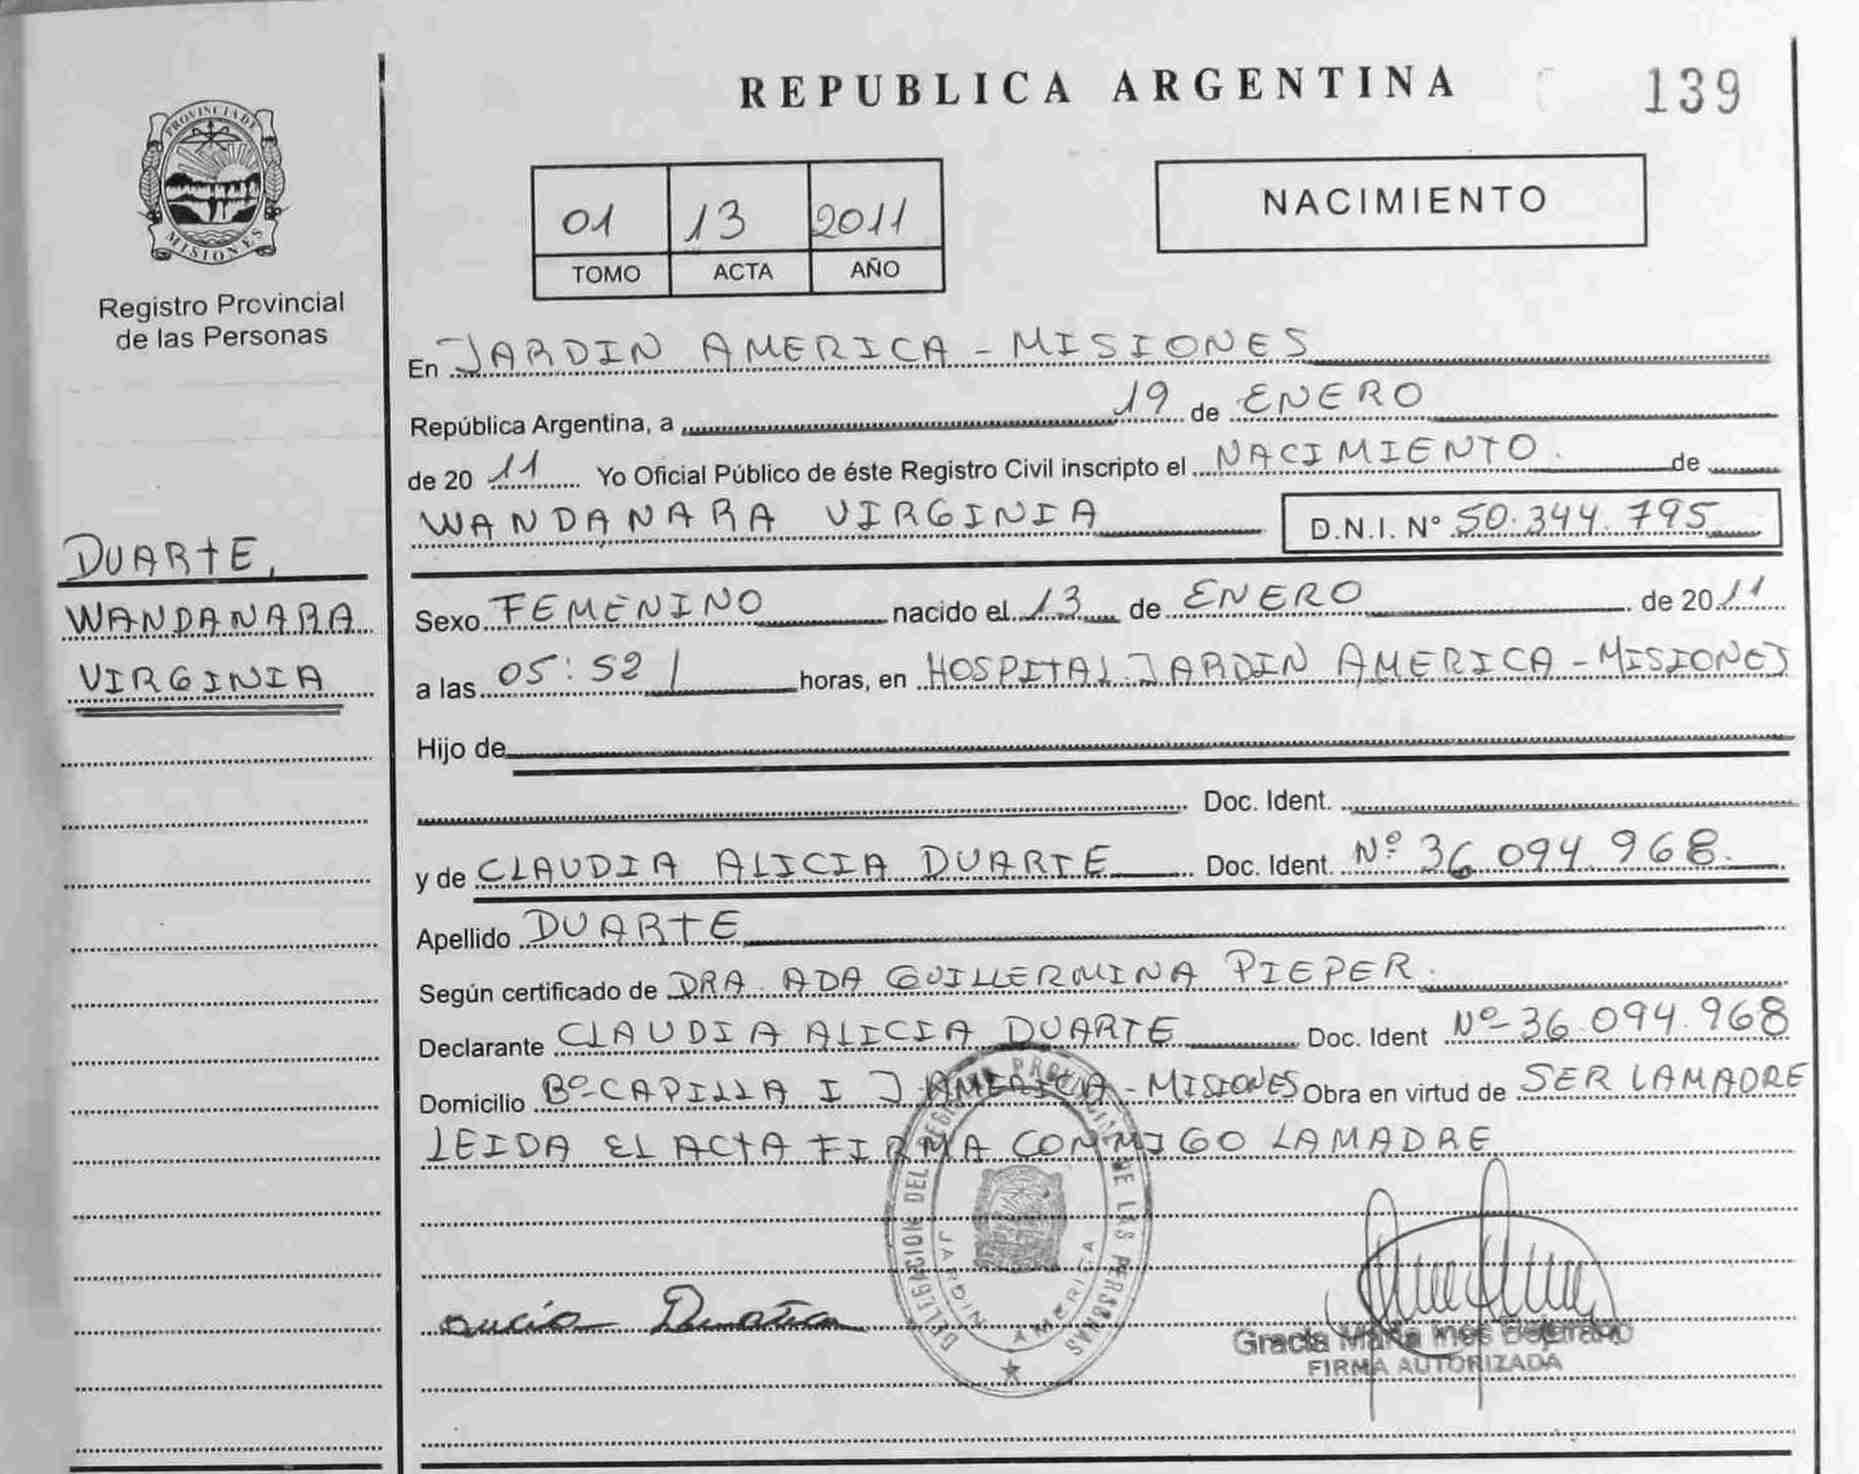 REPUBLICA ARGENTINA
139
PROVINCIA DE
MISIONES
Registro Provincial
de las Personas
01 13 2011
TOMO ACTA AÑO
NACIMIENTO
En JARDIN AMERICA - MISIONES
República Argentina, a 19 de ENERO
de 20 11 Yo Oficial Público de éste Registro Civil inscripto el NACIMIENTO. de
WANDANARA VIRGINIA D.N.I. N° 50.344.795
DUARTE,
WANDANARA
VIRGINIA
Sexo FEMENINO nacido el 13 de ENERO de 20 11
a las 05:52 horas, en HOSPITAL JARDIN AMERICA - MISIONES
Hijo de
Doc. Ident.
y de CLAUDIA ALICIA DUARTE Doc. Ident. Nº 36.094.968.
Apellido DUARTE
Según certificado de DRA. ADA GUILLERMINA PIEPER.
Declarante CLAUDIA ALICIA DUARTE Doc. Ident Nº 36.094.968
Domicilio Bº CAPILLA I J. AMERICA - MISIONES Obra en virtud de SER LA MADRE
LEIDA EL ACTA FIRMA CONMIGO LA MADRE
DELEGACION DEL REGISTRO PROVINCIAL DE LAS PERSONAS
JARDIN AMERICA
Gracia María Ines
FIRMA AUTORIZADA